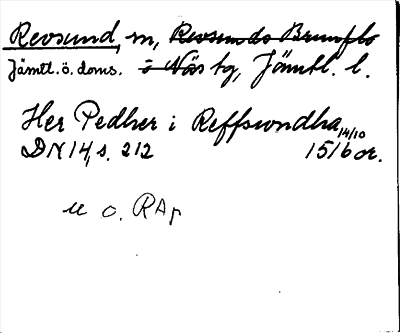 Revsund, sn, Revsunds Brunflo
Jämtl. ö. doms. o Näs tg, Jämtl. l.
Her Pedher i Reffswndha 14/10
DN 14, s. 212 1516 or.
o. RAp